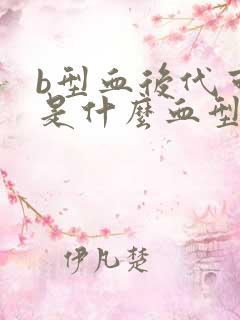 b型血後代可
是什麼血型
伊凡楚